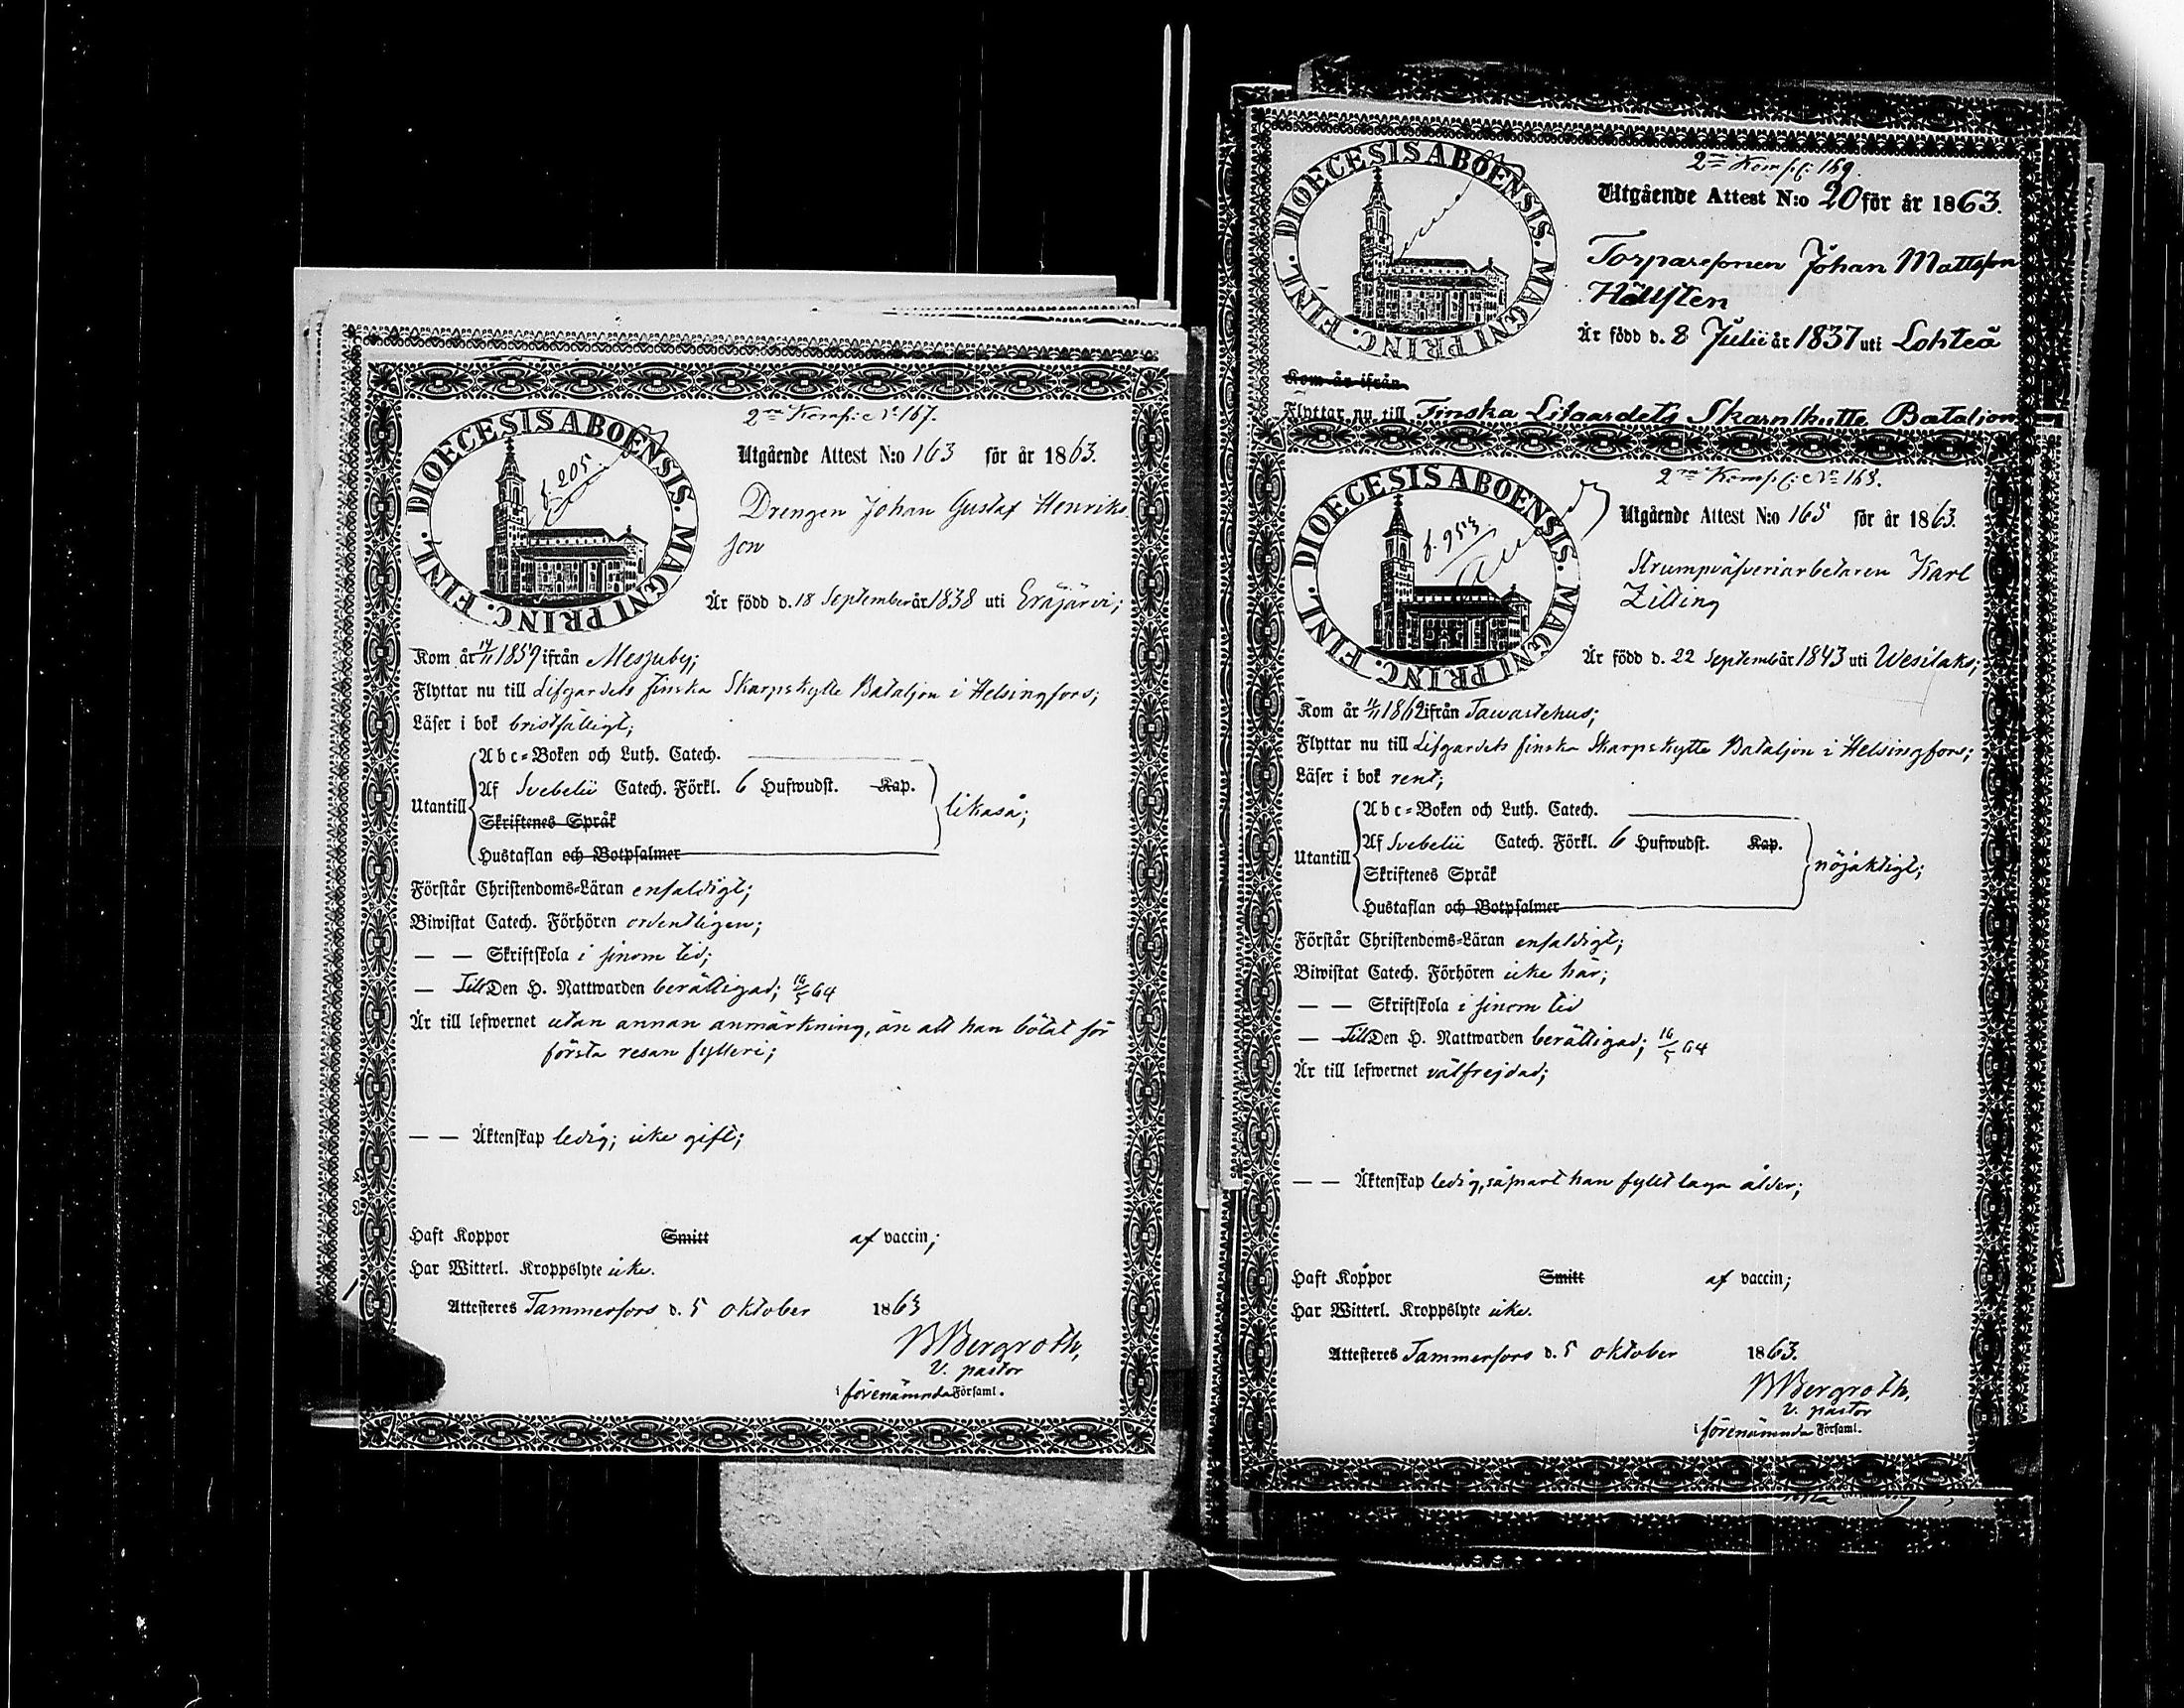 2ra Komp: No 167.
DIOECESIS ABOENSIS. MAGNI PRINC. FINL.
f. 205.
Utgående Attest N:o 163 för år 1863.
Drengen Johan Gustaf Henriks
son
Är född d. 18 September år 1838 uti Eräjärvi;
Kom år 14/11 1859 ifrån Messuby;
Flyttar nu till Lifgardets finska Skarpskytte Bataljon i Helsingfors;
Läser i bok bristfälligt;
Utantill
Abc-Boken och Luth. Catech.
Af Svebelii Catech. Förkl. 6 Hufwudst. Kap.
Skriftenes Språk
Hustaflan och Botpsalmer
likaså;
Förstår Christendoms-Läran enfaldigt;
Biwistat Catech. Förhören ordentligen;
— — Skriftskola i sinom tid;
— Till Den H. Nattwarden berättigad; 16/5 64
Är till lefwernet utan annan anmärkning, än att han bötat för
första resan fylleri;
— — Äktenskap ledig; icke gift;
Haft Koppor Smitt af vaccin;
Har Witterl. Kroppslyte icke.
Attesteras Tammerfors d. 5 oktober 1863
Bergroth,
v. pastor
i förenämnda Församl.
2ra Komp: 169.
DIOECESIS ABOENSIS. MAGNI PRINC. FINL.
Utgående Attest N:o 20 för år 1863.
Torparesonen Johan Mattsson
Hällsten
Är född d. 8 Julii år 1837 uti Lohteå
Kom år ifrån
Flyttar nu till Finska Lifgardets Skarpskytte Bataljon
2ra Komp: No 168.
DIOECESIS ABOENSIS. MAGNI PRINC. FINL.
f. 953
Utgående Attest N:o 165 för år 1863.
Strumpväfveriarbetaren Karl
Zilling
Är född d. 22 Septemb år 1843 uti Wesilaks;
Kom år 11/11 1862 ifrån Tawastehus;
Flyttar nu till Lifgardets finska Skarpskytte Bataljon i Helsingfors;
Läser i bok rent;
Utantill
Abc-Boken och Luth. Catech.
Af Svebelii Catech. Förkl. 6 Hufwudst. Kap.
Skriftenes Språk
Hustaflan och Botpsalmer
nöjaktigt;
Förstår Christendoms-Läran enfaldigt;
Biwistat Catech. Förhören icke här;
— — Skriftskola i sinom tid
— Till Den H. Nattwarden berättigad; 16/5 64
Är till lefwernet välfrejdad;
— — Äktenskap ledig, såsnart han fyllt laga ålder;
Haft Koppor Smitt af vaccin;
Har Witterl. Kroppslyte icke.
Attesteras Tammerfors d. 5 oktober 1863.
Bergroth,
v. pastor
i förenämnda Församl.